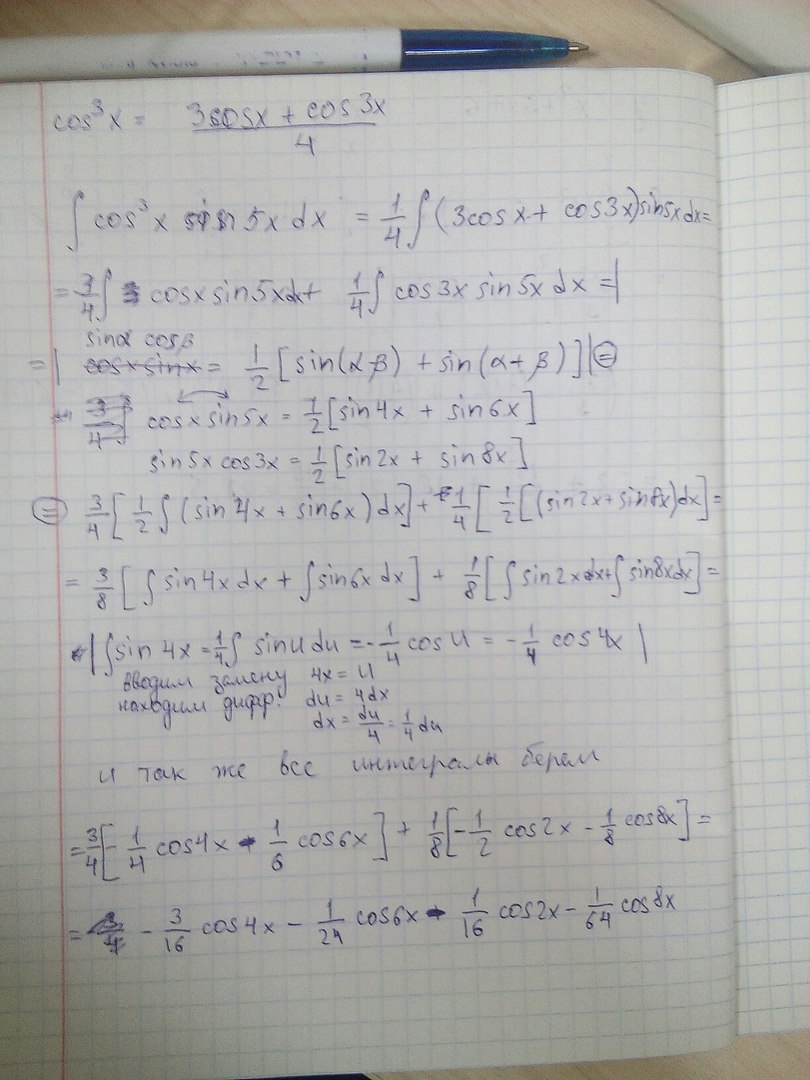 cos³x = (3cosx + cos3x)/4
∫ cos³x sin5x dx = 1/4 ∫ (3cosx + cos3x) sin5x dx =
= 3/4 ∫ cosx sin5x dx + 1/4 ∫ cos3x sin5x dx = |
sinα cosβ
= | = 1/2 [sin(α-β) + sin(α+β)] | ⊜
cosx sin5x = 1/2 [sin4x + sin6x]
sin5x cos3x = 1/2 [sin2x + sin8x]
⊜ 3/4 [1/2 ∫ (sin4x + sin6x) dx] + 1/4 [1/2 [(sin2x + sin8x) dx] =
= 3/8 [∫ sin4x dx + ∫ sin6x dx] + 1/8 [∫ sin2x dx + ∫ sin8x dx] =
| ∫ sin4x = 1/4 ∫ sinu du = -1/4 cosu = -1/4 cos4x |
вводим замену 4x = u
находим дифф: du = 4dx
dx = du/4 = 1/4 du
и так же все интегралы берем
= 3/4 [-1/4 cos4x - 1/6 cos6x] + 1/8 [-1/2 cos2x - 1/8 cos8x] =
= -3/16 cos4x - 1/24 cos6x - 1/16 cos2x - 1/64 cos8x